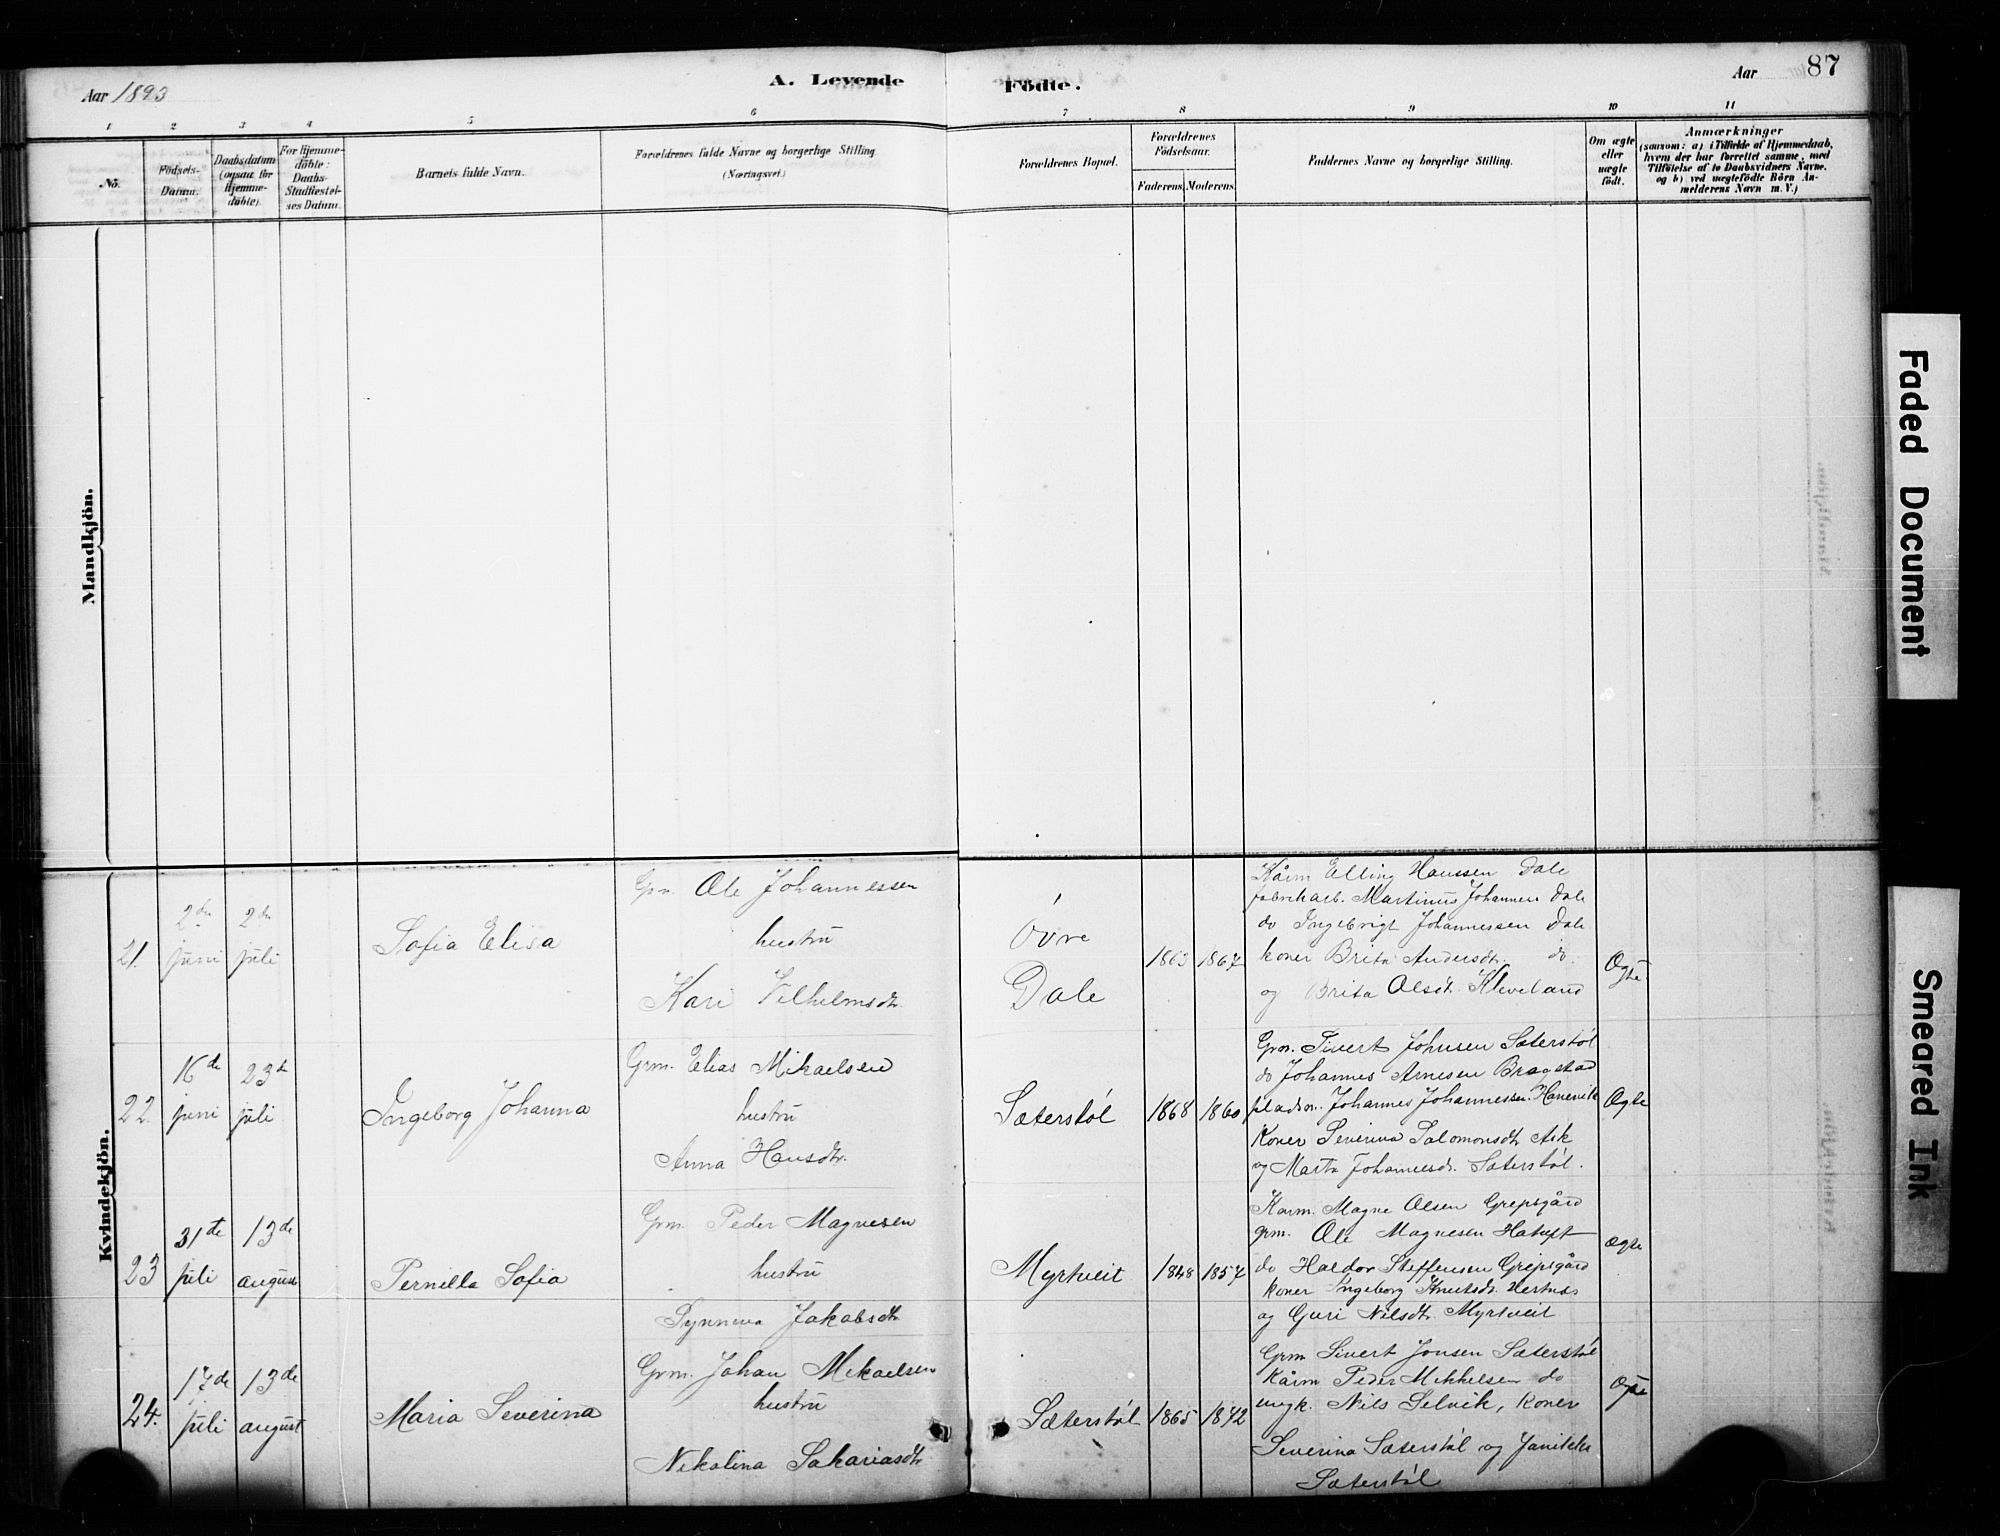 Aar 1893
A. Levende
Födte.
Aar
87
1 2 3 4 5 6 7 8 9 10 11
No.
Födsels-
Datum.
Daabsdatum
(ogsaa for
Hjemme-
döbte).
For Hjemme-
döbte:
Daabs-
Stadfæstel-
ses Datum.
Barnets fulde Navn.
Forældrenes fulde Navne og borgerlige Stilling.
(Næringsvei.)
Forældrenes Bopæl.
Forældrenes
Födselsaar.
Faderens.
Moderens.
Faddernes Navne og borgerlige Stilling.
Om ægte
eller
uægte
födt.
Anmærkninger
(saasom: a) i Tilfælde af Hjemmedaab,
hvem der har forrettet samme, med
Tilföielse af to Daabsvidners Navne,
og b) ved uægtefödte Börn An-
melderens Navn m. V.)
Mandkjön.
Kvindekjön.
21.
2den
juni
2den
juli
Sofia Elisa
Grm. Ole Johannessen
hustru
Kari Vilhelmsdtr.
Övre
Dale
1863
1867
Kårm Elling Hanssen Dale
fabrikarb. Martinus Johannen Dale
do Ingebrigt Johannessen Dale
koner Brita Andersdtr. do.
og Brita Olsdtr. Kleveland
Ægte
22.
16de
juni
23de
juli
Ingeborg Johanna
Grm. Elias Mikaelsen
hustru
Anna Hansdtr.
Sæterstøl
1868
1860
Grm. Sivert Johnsen Sæterstøl
do Johannes Arnesen Bragstad
pladsm. Johannes Johannessen Hanevik
Koner Severina Salomonsdtr Ask
og Marta Johannesdtr. Sæterstøl.
Ægte
23
31te
juli
13de
august
Pernilla Sofia
Grm. Peder Magnesen
hustru
Synneva Jakobsdtr
Myrtveit
1848
1857
Kårm. Magne Olsen Grepsgård
grm. Ole Magnesen Hatuft
do Haldor Steffensen Grepsgård
koner Ingeborg Knutsdtr. Hertnæs
og Guri Nilsdtr. Myrtveit
ægte
24.
17de
juli
13de
august
Maria Severina
Grm. Johan Mikaelsen
hustru
Nikolina Sakariasdtr
Sæterstøl
1865
1872
Grm Sivert Jonsen Sæterstøl
Kårm Peder Mikkelsen do
ungk. Nils Selvik, Koner
Severina Sæterstøl og Janikke
Sæterstøl
Ægte
Faded Document
Smeared Ink